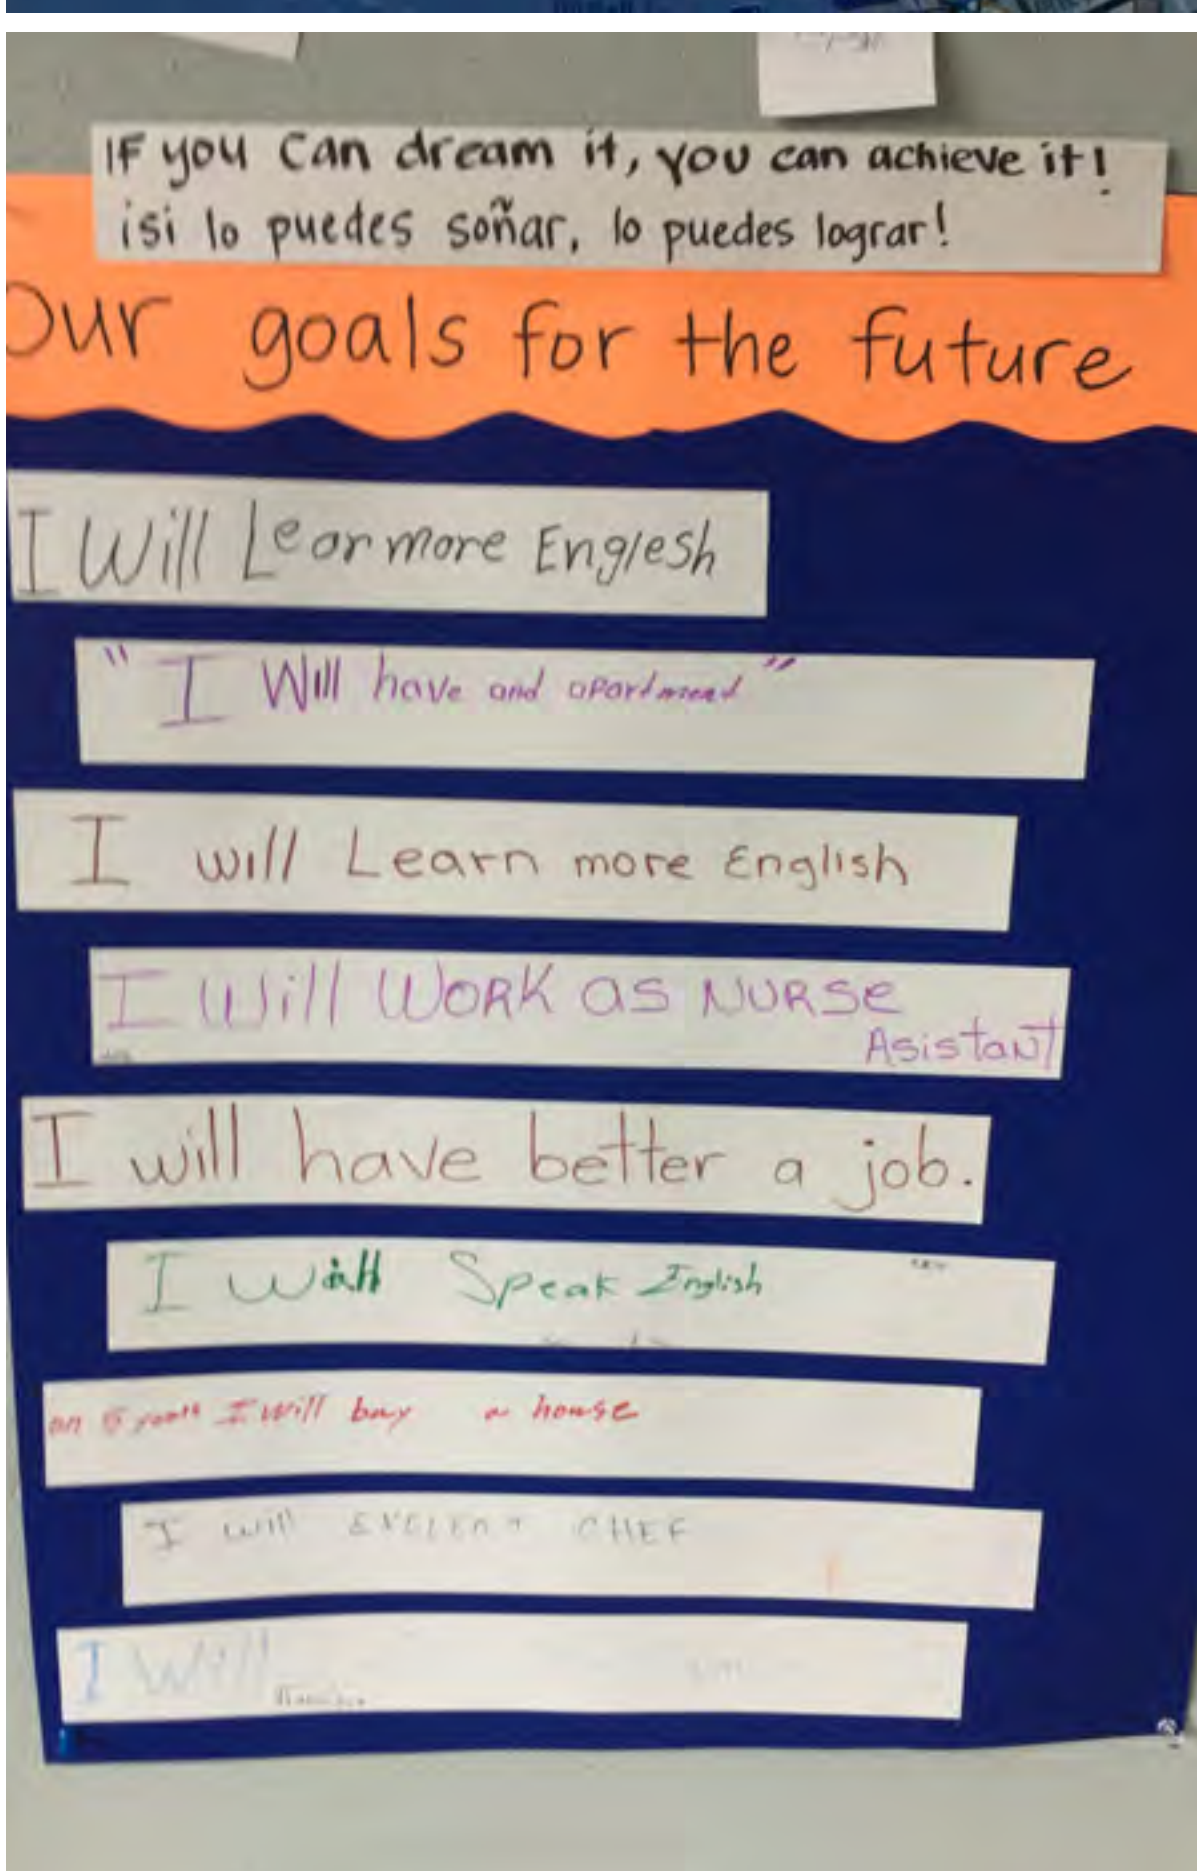 IF you Can dream it, you can achieve it!
¡si lo puedes soñar, lo puedes lograr!
Our goals for the future
I Will Lear more Englesh
"I Will have and apartment"
I will Learn more English
I Will WORK as NURSE
Asistant
I will have better a job.
I will Speak English
on 5 I will buy a house
I will EXELENT CHEF
I Will